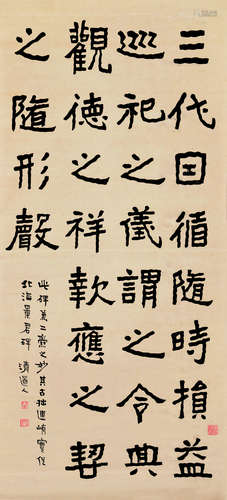 三代因循隨時損益
巡祀之儀謂之令典
觀德之祥欵應之契
之隨形聲
此碑兼二爨之妙其古拙
北海景君碑 清道人